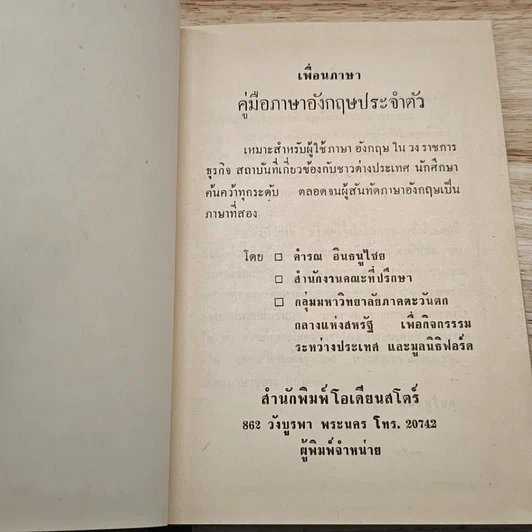 เพื่อนภาษา
คู่มือภาษาอังกฤษประจำตัว
เหมาะสำหรับผู้ใช้ภาษา อังกฤษ ใน วง ราชการ
ธุรกิจ สถาบันที่เกี่ยวข้องกับชาวต่างประเทศ นักศึกษา
ค้นคว้าทุกระดับ ตลอดจนผู้สันทัดภาษาอังกฤษเป็น
ภาษาที่สอง
โดย □ ดำรณ อินธนูไชย
□ สำนักงานคณะที่ปรึกษา
□ กลุ่มมหาวิทยาลัยภาคตะวันตก
กลางแห่งสหรัฐ เพื่อกิจกรรม
ระหว่างประเทศ และมูลนิธิฟอร์ด
สำนักพิมพ์โอเดียนสโตร์
862 วังบูรพา พระนคร โทร. 20742
ผู้พิมพ์จำหน่าย